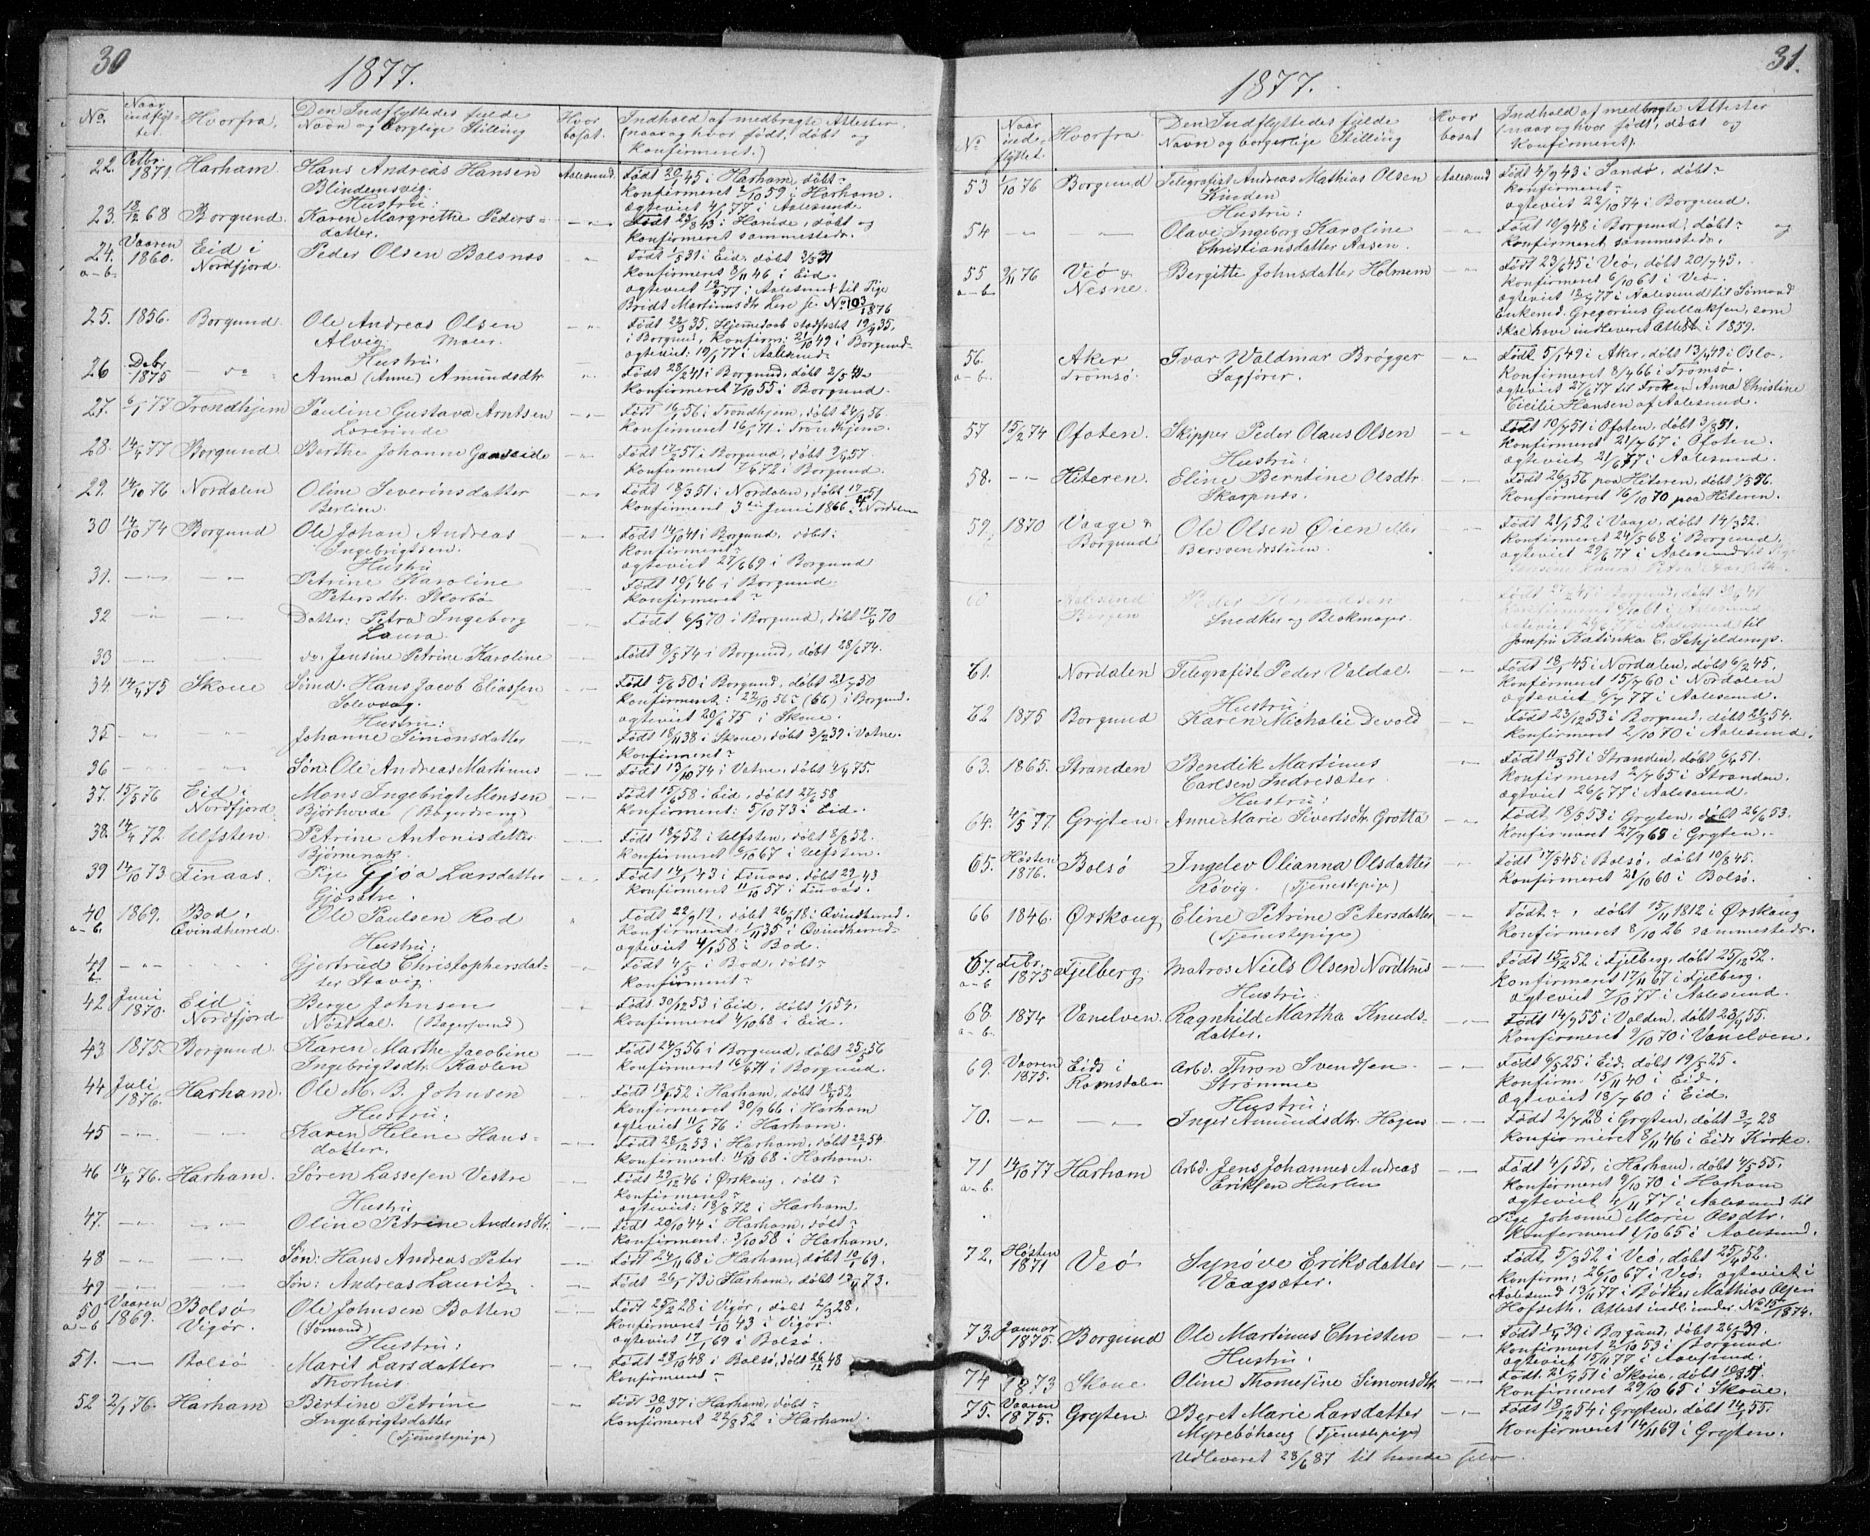 30
1877.
No. Naar indflyttet Hvorfra. Den Indflyttedes fulde Navn og borgerlige Stilling Hvor bosat. Indhold af medbragte Attester (naar og hvor født, døbt og konfirmeret.)
22. 1871 Harham Hans Andreas Hansen Aalesund. Født 20/1 45 i Harham, døbt
Blindemsvig. Konfirmeret 2/10 59 i Harham.
Hustru: ægteviet 4/1 77 i Aalesund
23. 68 Borgund. Karen Margrethe Peders- datter. Født 23/8 43 i Hareide, døbt og
Konfirmeret sammesteds.
24. a-b. Vaaren 1860. Eid i Nordfjord. Peder Olsen Balsnæs Født 31 i Eid, døbt 31
Konfirmeret 8/11 46 i Eid.
ægteviet 77 i Aalesund til Pige
No 103/1876
25. 1856. Borgund. Ole Andreas Olsen Født 35. Hjemmedaab stadfæstet 19/4 35.
Alvig Maler. i Borgund, Konfirm: 21/10 49 i Borgund
Hustru: ægteviet: 19/1 77 i Aalesund
26 Debr 1875 Anna (Anne) Amundsdtr Født 28/2 41 i Borgund, døbt 2/5 41
Konfirmeret 7/10 55 i Borgund.
27. 6/1 77 Trondhjem Pauline Gustava Arntsen Født 14/1 56 i Trondhjem, døbt 24/3 56.
Lærerinde Konfirmeret 16/4 71 i Trondhjem.
28. 14/4 77 Borgund Berthe Johanne Født 57 i Borgund, døbt 57
Konfirmeret 72 i Borgund.
29. 14/10 76 Nordalen Oline Severinsdatter Født 18/3 51 i Nordalen, døbt 51
Berlien. Konfirmert 3die Juni 1866 i Nordalen
30 14/10 74 Borgund Ole Johan Andreas Født 14/10 41 i Borgund, døbt:
Ingebrigtsen. Konfirmeret
Hustru ægteviet 27/6 69 i Borgund
31. Petrine Karoline Født 19/1 46 i Borgund
Petersdtr. Skorbø Konfirmeret
32 Datter: Petra Ingeborg Født 6/3 70 i Borgund, døbt 17/4 70
Laura.
33 do. Jensine Petrine Karoline Født 8/5 74 i Borgund, døbt 28/6 74.
34. 14/4 75 Skoue Sømd. Hans Jacob Eliassen Født 5/6 50 i Borgund, døbt 21/7 50
Konfirmeret: i 22/10 56 (66) i Borgund.
Hustru: ægteviet 20/6 75 i Skoue.
35 Johanne Simonsdatter Født 18/11 38 i Skoue, døbt 3/2 39 i Vatne.
Konfirmeret
36 Søn: Ole Andreas Martinus Født 13/10 74 i Vatne, døbt 4/4 75.
37. 15/5 76 Eid i Nordfjord Mons Ingebrigt Monsen Født 15/6 58 i Eid, døbt 27/6 58
Bjørhovde (Bagerdreng) Konfirmeret: 5/10 73 i Eid.
38. 14/4 72 Ulfsten. Petrine Antonisdatter Født 18/7 52 i Ulfsten, døbt 8/8 52.
Konfirmeret 6/10 67 i Ulfsten.
39 14/10 73 Finaas. Pige Gjøa Larsdatter Født 14/1 43 i Finaas, døbt 29/1 43
Gjøsætre. Konfirmeret 11/10 57 i Finaas.
40 a-b. 1869. Bod, Qvindherred. Ole Paulsen Rod Født 22/9 12, døbt 26/9 18 i Qvindherred.
Konfirmeret: 1/11 35 i Qvindherred
Hustru: ægteviet 4/1 58 i Bod.
41 Gjertrud Christophersdat- Født 4/5 i Bod, døbt
ter Stavig. Konfirmeret
42 Juni 1870. Eid i Nordfjord Berge Johnsen Født 30/12 53 i Eid, døbt 1/1 54.
Nøstdal. (Bagersvend) Konfirmeret 4/10 68 i Eid.
43 1875 Borgund. Karen Marthe Jacobine Født 24/3 56 i Borgund, døbt 25/3 56
Ingebrigtsdtr. Kavlen Konfirmeret 16/4 71 i Borgund.
44 Juli 1876. Harham. Ole M. B. Johnsen Født 52 i Harham, døbt 52
Konfirmeret 30/9 66 i Harham
Hustru: ægteviet 11/6 76 i Harham.
45 Karen Helene Hans- Født 28/12 53 i Harham, døbt 22/1 54.
datter. Konfirmeret: 11/10 68 i Harham.
46 14/4 76. Harham. Søren Lassesen Vestre Født 29/12 46 i Ørskoug, døbt
Konfirmeret
Hustru ægteviet: 18/8 72 i Harham.
47. Oline Petrine Andersdtr Født 20/10 44 i Harham, døbt
Konfirmeret: 3/10 58 i Harham.
48 Søn: Hans Andreas Peter Født 24/11 68 i Harham, døbt 10/1 69.
49 Søn: Andreas Laurits Født 26/1 73 i Harham, døbt 73.
50 a-b Vaaren 1869. Bolsø Vigør. Ole Johnsen Botten Født 25/2 28 i Vigør, døbt 2/3 28.
(Sømand) Konfirmeret 1/10 43 i Vigør.
Hustru: ægteviet 17/1 69 i Bolsø.
51. Bolsø Marit Larsdatter Født 28/10 48 i Bolsø, døbt 26/12 48
Thorhus. Konfirmeret
52 2/1 76. Harham Bertine Petrine Født 30/10 37 i Harham, døbt
Ingebrigtsdatter Konfirmeret 22/8 52 i Harham.
(Tjenestepige)
31.
1877.
No Naar indflyttet. Hvorfra Den Indflyttedes fulde Navn og borgerlige Stilling Hvor bosat Indhold af medbragte Attester (naar og hvor født, døbt og Konfirmeret).
53 1/10 76 Borgund Telegrafist Andreas Mathias Olsen Aalesund Født 4/9 43 i Sandø, døbt
Knoden Konfirmeret
Hustru: ægteviet 22/10 74 i Borgund.
54 Olave Ingeborg Karoline Født 10/9 48 i Borgund, døbt og
Christiansdatter Aasen. Konfirmeret sammesteds.
55 a-b. 2/11 76 Veø & Nesne Bergitte Johnsdatter Holmem Født 23/6 45 i Veø, døbt 20/7 45.
Konfirmeret 6/10 61 i Veø.
ægteviet 77 i Aalesund til Sømand
Enkemd. Gregorius Gullaksen, som
skal have indleveret Attest i 1859.
56. a-b. Aker Tromsø. Ivar Waldmar Brøgger Født 5/1 49 i Aker, døbt 13/4 49 i Oslo.
Sagfører. Konfirmeret 8/4 66 i Tromsø.
ægteviet 27/6 77 til Frøken Anna Christine
Cicilie Hansen af Aalesund.
57 15/2 74 Ofoten. Skipper Peder Olaus Olsen Født 10/7 51 i Ofoten, døbt 3/8 51.
Konfirmeret 21/7 67 i Ofoten.
Hustru: ægteviet, 21/6 77 i Aalesund.
58. Hiteren. Eline Berntine Olsdtr. Født 26/3 56 paa Hiteren, døbt 1/5 56.
Skarpnes. Konfirmeret 16/10 70 paa Hiteren.
59. 1870 Vaage & Borgund Ole Olsen Øien eller Født 21/1 52 i Vaage, døbt 14/3 52.
Konfirmeret 24/5 68 i Borgund,
ægteviet 29/6 77 i Aalesund til Pige
60 Aalesund Bergen Peder
Snedker og Blokmager.
Jomfru Katinka C. Schjelderup.
61. Nordalen Telegrafist Peder Valdal. Født 18/1 45 i Nordalen, døbt 6/2 45.
Konfirmeret 15/7 60 i Nordalen
Hustru: ægteviet 6/7 77 i Aalesund.
62 1875 Borgund Karen Michalie Devold Født 23/12 53 i Borgund, døbt 54.
Konfirmeret 2/10 70 i Aalesund.
63. 1865. Stranden Bendik Martinus Født 11/5 51 i Stranden, døbt 6/7 51.
Carlsen Indresæter Konfirmeret 2/7 65 i Stranden.
Hustru: ægteviet 26/6 77 i Aalesund.
64. 4/5 77. Gryten. Anne Marie Sivertsdtr. Grotta Født, 18/5 53 i Gryten, døbt 26/6 53.
Konfirmeret 27/9 68 i Gryten.
65. Høsten 1876. Bolsø Ingelev Olianna Olsdatter Født 17/5 45 i Bolsø, døbt 10/8 45.
Røvig. (Tjenestepige) Konfirmeret 21/10 60 i Bolsø.
66 1846. Ørskoug, Eline Petrine Petersdatter Født , døbt 15/11 1812 i Ørskoug
(Tjenestepige) Konfirmeret 8/10 26 sammesteds.
67. a-b. Febr. 1875 Fjelberg. Matros Niels Olsen Nordhus Født 15/12 52 i Fjelberg, døbt 25/12 52.
Konfirmeret 17/11 67 i Fjelberg.
Hustru: ægteviet 7/10 77 i Aalesund.
68. a-b. 1874 Vanelven. Ragnhild Martha Knuds- Født 14/9 55 i Volden, døbt 23/9 55.
datter. Konfirmeret 9/10 70 i Vanelven.
69. Vaaren 1875. Eids i Romsdalen Arbd. Thron Svendsen Født 6/5 25 i Eid, døbt 19/5 25.
Strømme Konfirm. 15/11 40 i Eid.
Hustru: ægteviet 18/7 60 i Eid.
70. Inger Amundsdtr. Hagen Født 2/7 28 i Gryten, døbt 28
Konfirmeret 8/11 46 i Eids Kirke.
71 a-b. 14/10 77 Harham Arbd. Jens Johannes Andreas Født 4/1 55, i Harham, døbt 4/5 55.
Eriksen Konfirmeret 9/10 70 i Harham
ægteviet 4/11 77 i Aalesund til
Pige Johanne Marie Olsdtr.
Konfirmeret 1/10 65 i Aalesund.
72. Høsten 1871 Veø Synøve Eriksdatter Født, 5/3 52 i Veø, døbt 25/4 52.
Vaagsæter. Konfirm: 26/10 67 i Veø ægteviet i
Aalesund 13/11 77 i Bødker Mathias Olsen
Hofseth. Attest indl. under No 15/1874.
73. Januar 1875. Borgund Ole Martinus Christen Født 39 i Borgund, døbt 26/5 39.
Konfirmeret 2/10 53 i Borgund
Hustru: ægteviet 15/11 77 i Aalesund.
74 1873 Skoue Oline Thomesine Simonsdtr. Født: 21/7 51 i Skoue, døbt 10/8 51.
Konfirmeret 29/10 65 i Skoue.
75. Vaaren 1875. Gryten Beret Marie Larsdatter Født 18/12 54 i Gryten, døbt 14/1 55.
Myrebøhaug (Tjenestepige) Konfirmeret 14/11 69 i Gryten.
Udleveret 23/6 87 til hende selv.